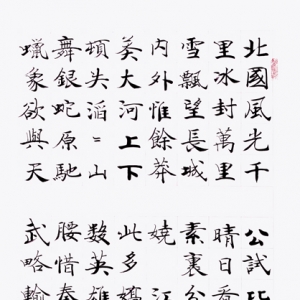 北國風光千
里冰封萬里
雪飄望長城
内外惟餘莽
莽大河上下
頓失滔〻山
舞銀蛇原馳
蠟象欲與天
公試比
晴日看
素裹分
嬈江
此多嬌
数英雄
腰惜秦
武略輸